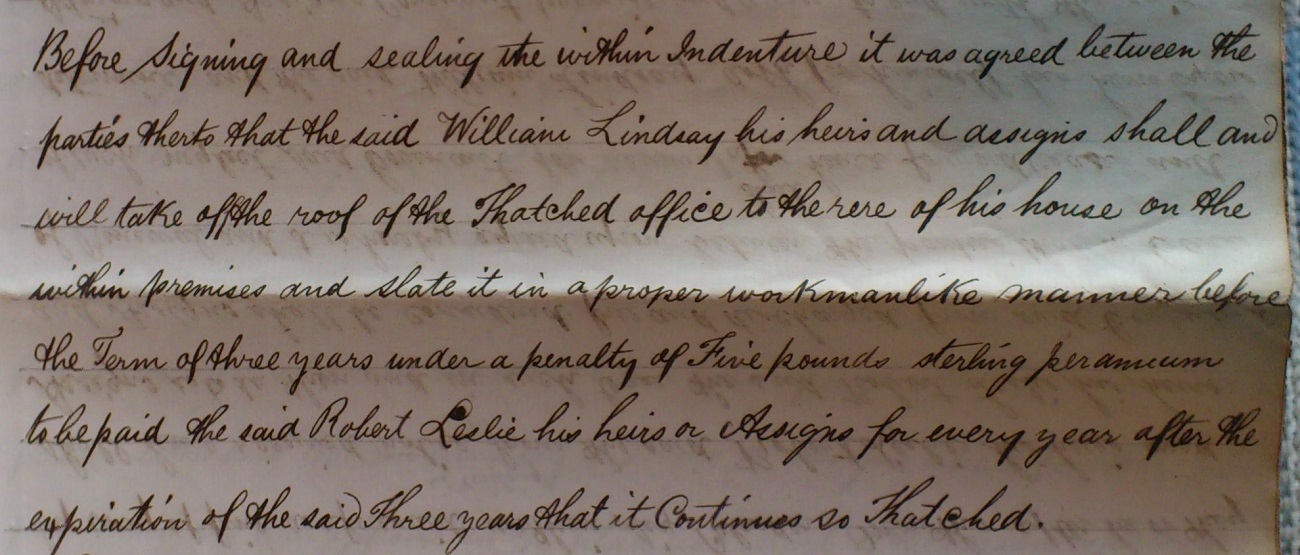 Before Signing and sealing the within Indenture it was agreed between the
parties therto that the said William Lindsay his heirs and assigns shall and
will take off the roof of the Thatched office to the rere of his house on the
within premises and slate it in a proper workmanlike manner before
the Term of three years under a penalty of Five pounds sterling per annum
to be paid the said Robert Leslie his heirs or Assigns for every year after the
expiration of the said Three years that it Continues so Thatched.